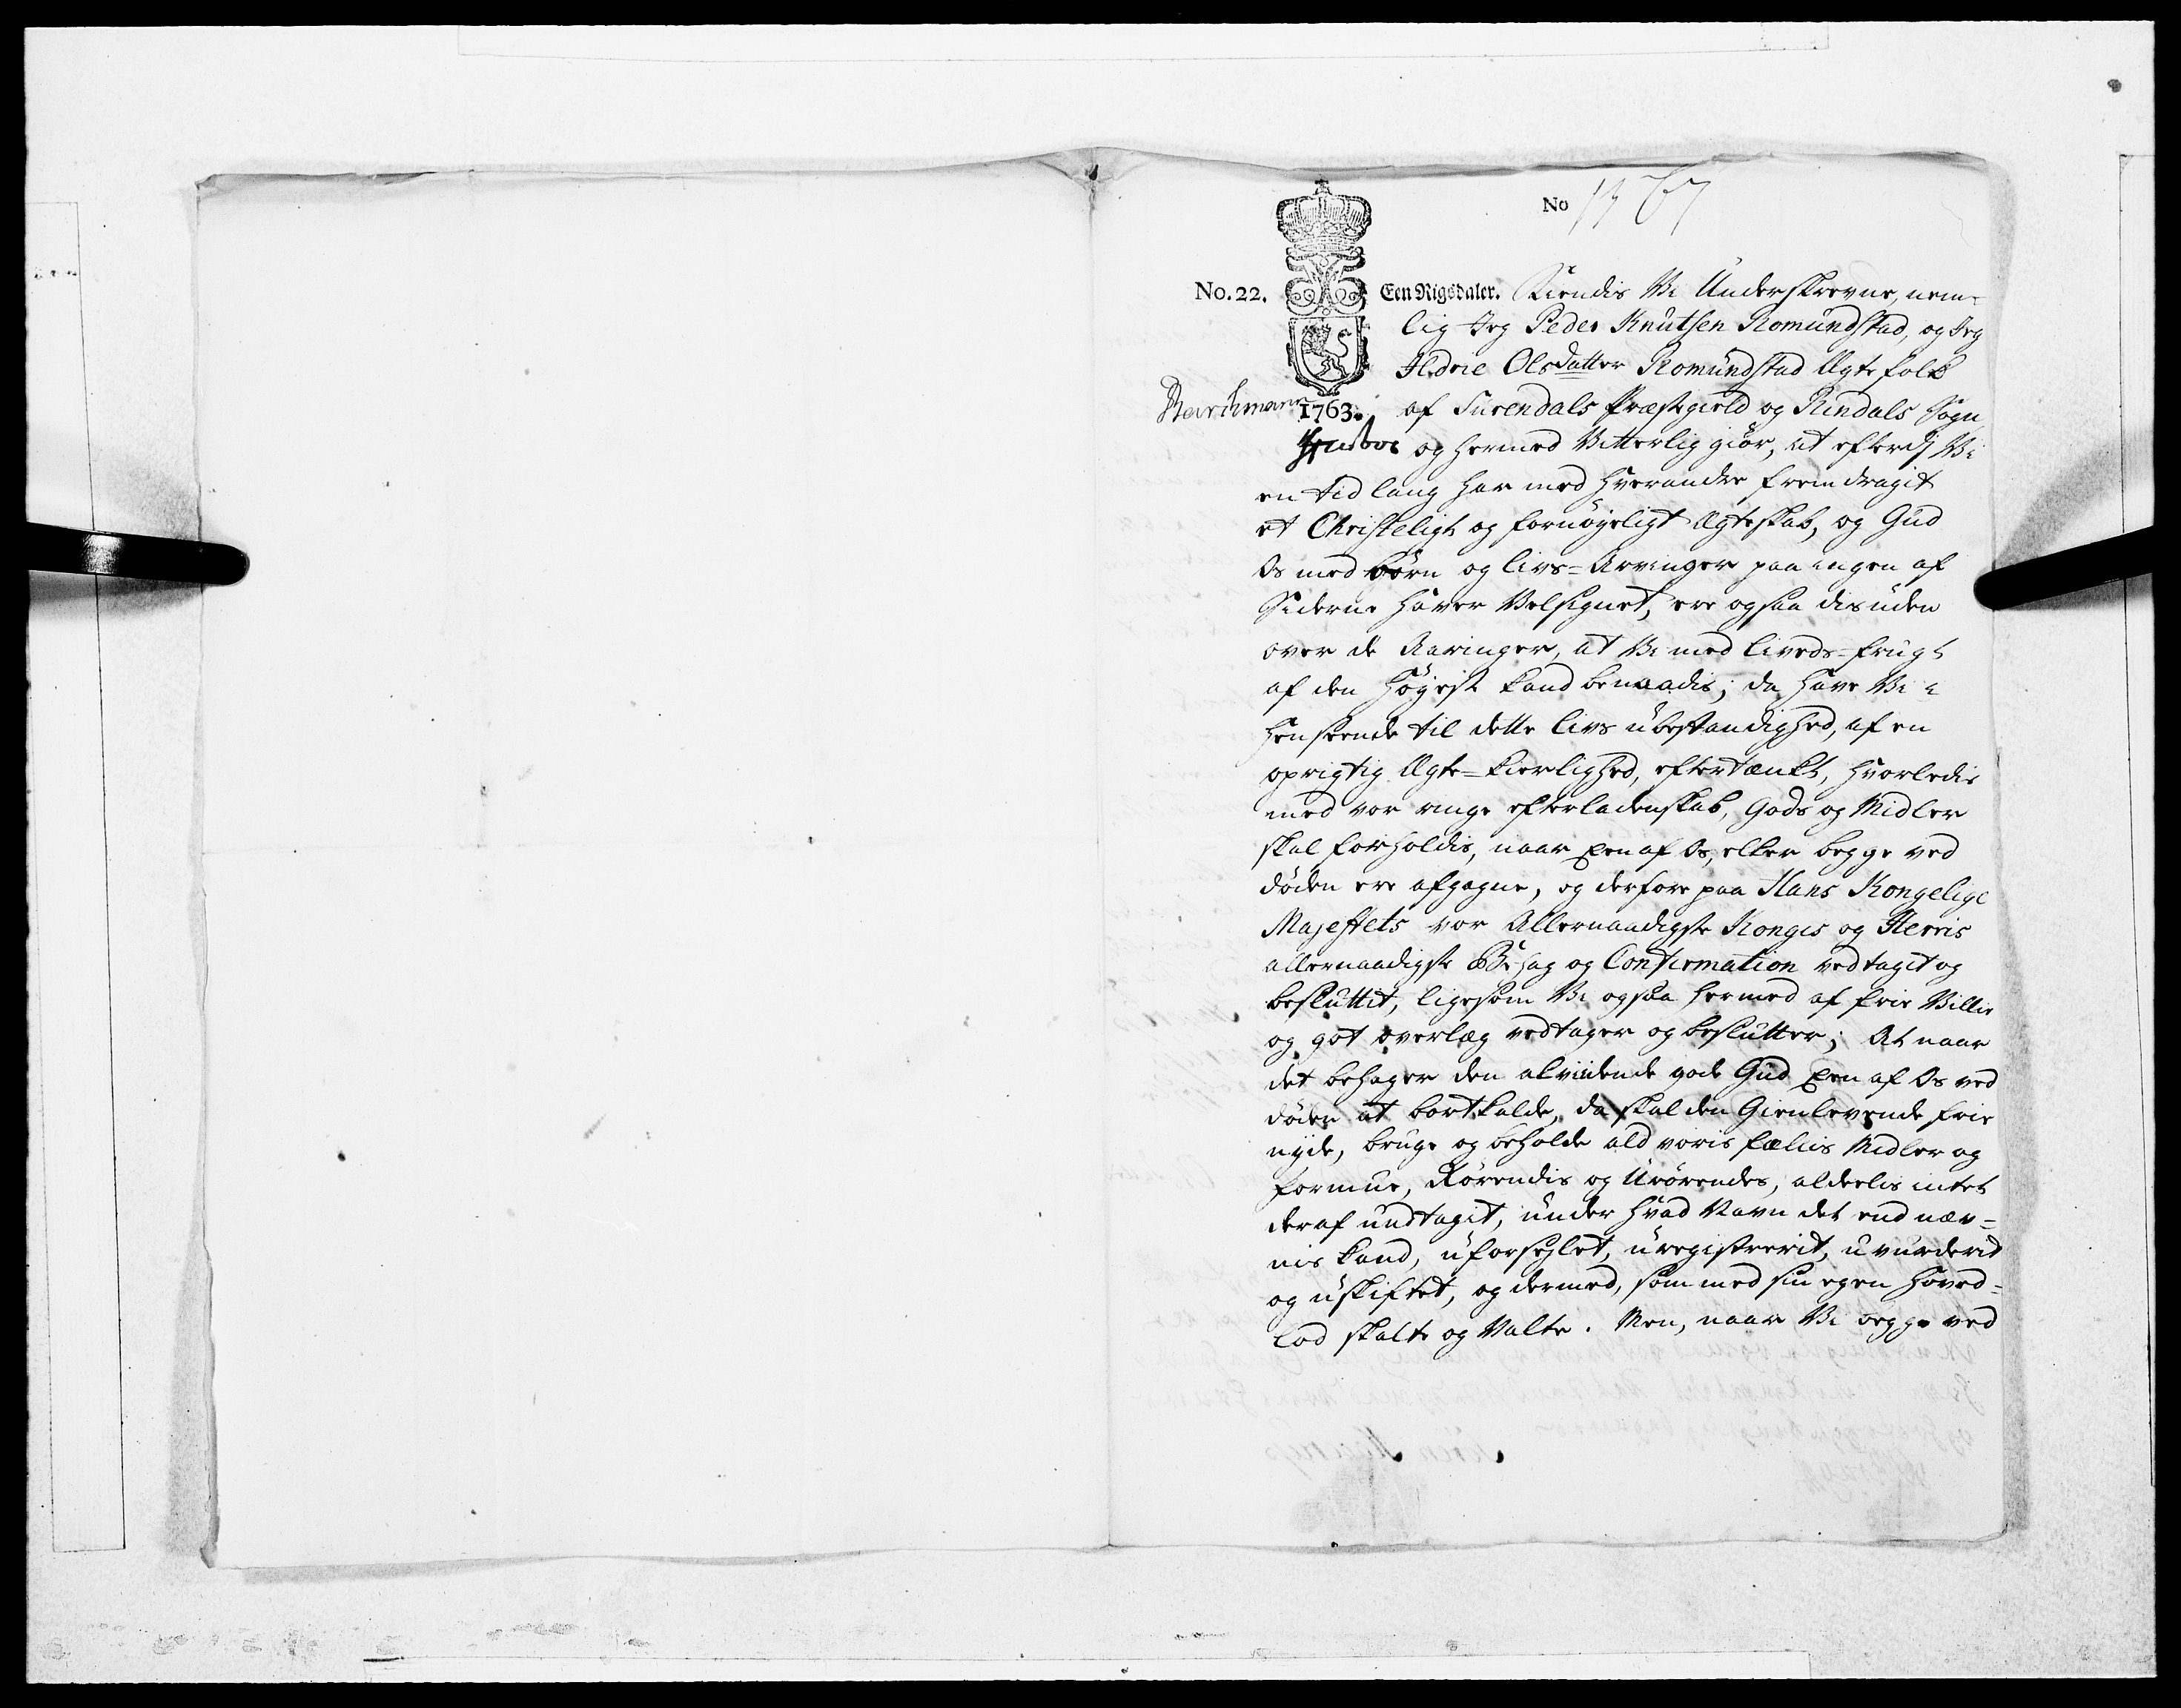 No 1767
No. 22. Een Rigsdaler. Kiendis Vi Underskrevne, nem-
lig Jeg Peder Knutsen Romundstad, og Jeg
Ildrie Olsdatter Romundstad Ægtefolk
1763. af Surendals Præstegield og Rindals Sogn
og hermed Vitterlig giør, at efterdj Vi
en tid lang har med hverandre fremdraget
et Christeligt og fornøyeligt Ægteskab, og Gud
Os med børn og livs-Arvinger paa ingen af
Siderne haver Velsignet, ere ogsaa disuden
over de Aaringer, at Vi med Liveds-frugt
af den Høyeste kand benaadis; da have Vi i
henseende til dette livs ubestandighed, af en
oprigtig Ægte-kierlighed, eftertænkt, hvorledis
med vor ringe efterladenskab, Gods og Midler
skal forholdis, naar een af Os, eller begge ved
døden ere afgagne, og derfore paa Hans Kongelige
Majestets vor Allernaadigste Konges og Herris
allernaadigste Behag og Confirmation vedtagit og
besluttit, ligesom Vi ogsaa hermed af frie Villie
og got overlæg vedtager og beslutter; At naar
det behager den alviidende gode Gud een af Os ved
døden at bortkalde, da skal den Gienlevende frie
nyde, bruge og beholde ald voris fællis Midler og
formue, Rørendis og Urørendes, alderlis intet
deraf undtagit, under hvad Navn det end næv-
nis kand, uforseglet, uregistrerit, uvurderit
og uskiftet, og dermed, som med sin egen hoved-
lod skalte og Valte. Men, naar Vi begge ved